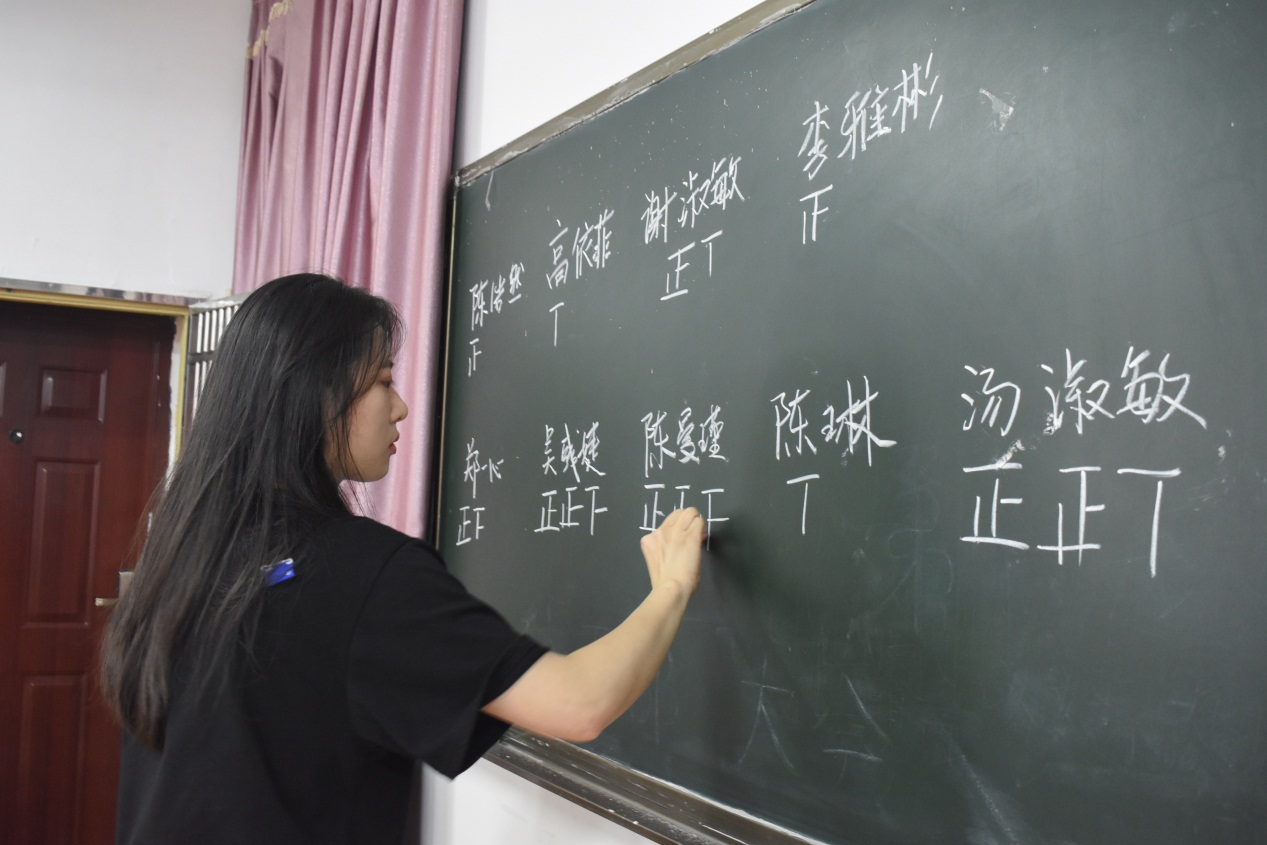 陈浩然 高依菲 谢淑敏 李雅彬
正 丅 正丅 正
郑一心 吴彧婕 陈曼瑾 陈琳 汤淑敏
正下 正正下 正正下 丅 正正丅